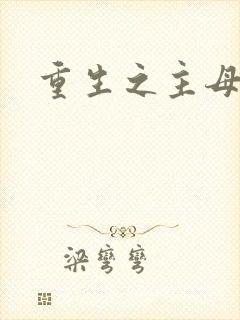 重生之主母
梁弯弯